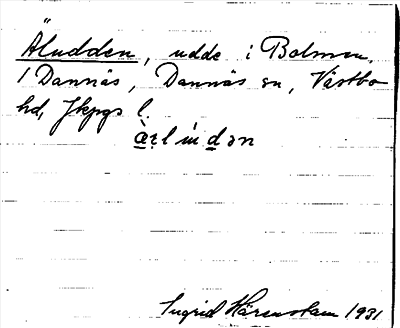 Äludden, udde i Bolmen,
i Dannäs, Dannäs sn, Västbo
hd, Jkpgs l.
Ingrid Härenstam 1931